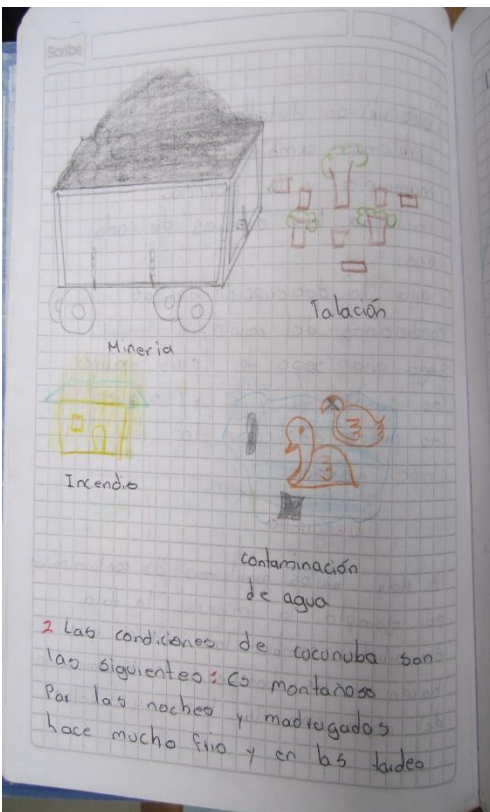 Scribe
Mineria
Talación
Incendio
contaminación
de agua
2 Las condiciones de cocunuba son
las siguientes: Es montañoso
Por las noches y madrugados
hace mucho frio y en las tardes